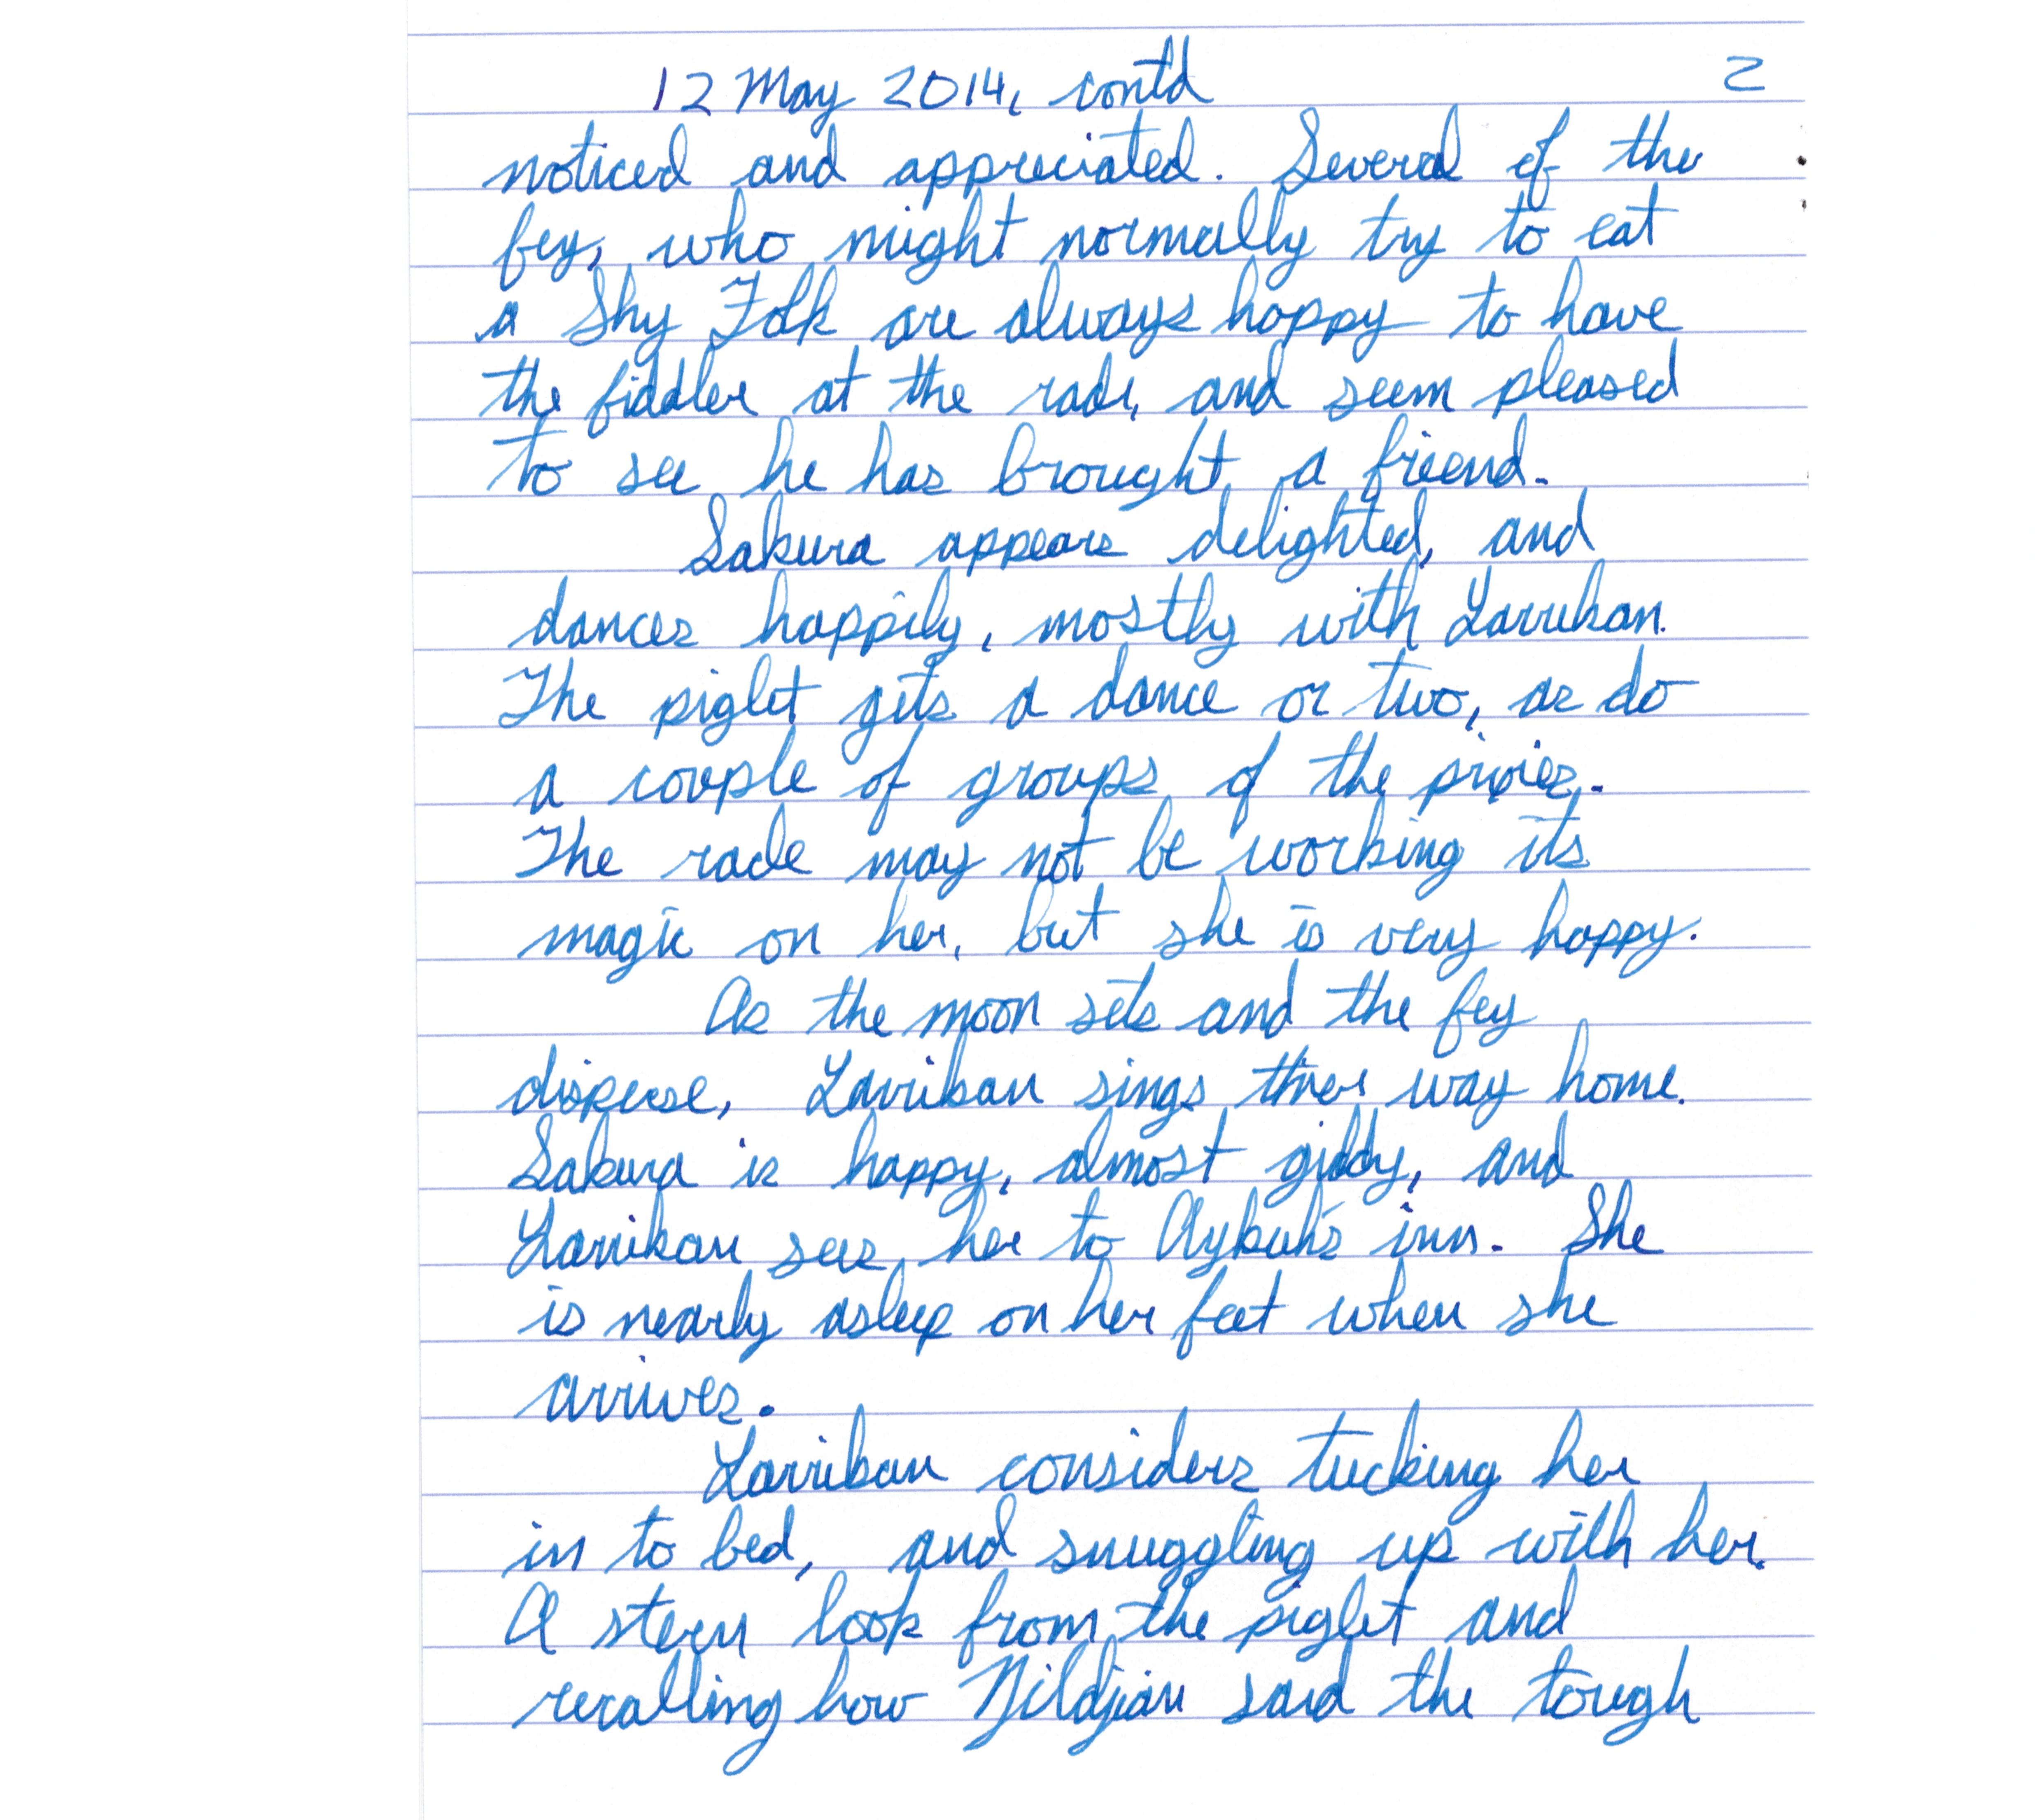 12 May 2014, contd 2
noticed and appreciated. Several of the
fey, who might normally try to eat
a Shy Folk are always happy to have
the fiddler at the rade, and seem pleased
to see he has brought a friend.
Sakura appears delighted, and
dances happily, mostly with Larrikan.
The piglet gets a dance or two, as do
a couple of groups of the pixies.
The rade may not be working its
magic on her, but she is very happy.
As the moon sets and the fey
disperse, Larrikan sings their way home.
Sakura is happy, almost giddy, and
Larrikan sees her to Aykut's inn. She
is nearly asleep on her feet when she
arrives.
Larrikan considers tucking her
in to bed, and snuggling up with her.
A stern look from the piglet and
recalling how Nildjian said the tough